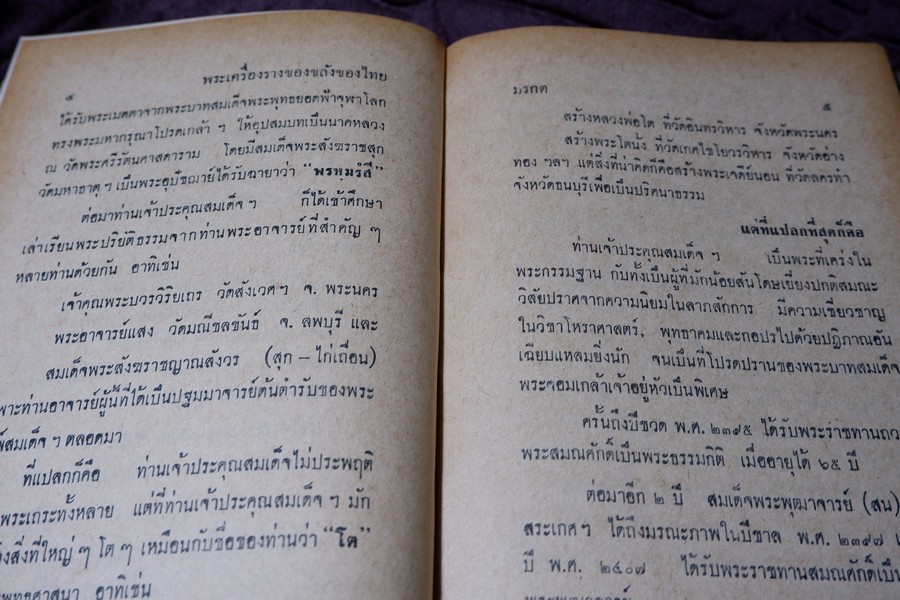 พระเครื่องรางของขลังของไทย
๔
ได้รับพระเมตตาจากพระบาทสมเด็จพระพุทธยอดฟ้าจุฬาโลก
ทรงพระมหากรุณาโปรดเกล้า ฯ ให้อุปสมบทเป็นนาคหลวง
ณ วัดพระศรีรัตนศาสดาราม โดยมีสมเด็จพระสังฆราชสุก
วัดมหาธาตุ ฯ เป็นพระอุปัชฌาย์ได้รับฉายาว่า “พรหฺมรํสี”
ต่อมาท่านเจ้าประคุณสมเด็จ ฯ ก็ได้เข้าศึกษา
เล่าเรียนพระปริยัติธรรมจากท่านพระอาจารย์ที่สำคัญ ๆ
หลายท่านด้วยกัน อาทิเช่น
เจ้าคุณพระบวรวิริยเถร วัดสังเวศฯ จ. พระนคร
พระอาจารย์แสง วัดมณีชลขันธ์ จ. ลพบุรี และ
สมเด็จพระสังฆราชญาณสังวร (สุก – ไก่เถื่อน)
พาะท่านอาจารย์ผู้นี้ที่ได้เป็นปฐมมาจารย์ต้นตำรับของพระ
สมเด็จ ฯ ตลอดมา
ที่แปลกก็คือ ท่านเจ้าประคุณสมเด็จไม่ประพฤติ
พระเถระทั้งหลาย แต่ที่ท่านเจ้าประคุณสมเด็จ ฯ มัก
สิ่งที่ใหญ่ ๆ โต ๆ เหมือนกับชื่อของท่านว่า “โต”
พุทธศาสนา อาทิเช่น
มรกต
๕
สร้างหลวงพ่อโต ที่วัดอินทรวิหาร จังหวัดพระนคร
สร้างพระโตนั่ง ที่วัดเกศไชโยวรวิหาร จังหวัดอ่าง
ทอง ฯลฯ แต่สิ่งที่น่าคิดก็คือสร้างพระเจดีย์นอน ที่วัดลครทำ
จังหวัดธนบุรีเพื่อเป็นปริศนาธรรม
แต่ที่แปลกที่สุดก็คือ
ท่านเจ้าประคุณสมเด็จ ฯ เป็นพระที่เคร่งใน
พระกรรมฐาน กับทั้งเป็นผู้ที่มักน้อยสันโดษเยี่ยงปกติสมณะ
วิสัยปราศจากความนิยมในลาภสักการ มีความเชี่ยวชาญ
ในวิชาโหราศาสตร์, พุทธาคมและกอปรไปด้วยปฏิภาณอัน
เฉียบแหลมยิ่งนัก จนเป็นที่โปรดปรานของพระบาทสมเด็จ
พระจอมเกล้าเจ้าอยู่หัวเป็นพิเศษ
ครั้นถึงปีชวด พ.ศ. ๒๓๙๕ ได้รับพระราชทานถว
พระสมณศักดิ์เป็นพระธรรมกิติ เมื่ออายุได้ ๖๕ ปี
ต่อมาอีก ๒ ปี สมเด็จพระพุฒาจารย์ (สน)
สระเกศฯ ได้ถึงมรณะภาพในปีขาล พ.ศ. ๒๓๙๗
ปี พ.ศ. ๒๔๐๗ ได้รับพระราชทานสมณศักดิ์เป็น